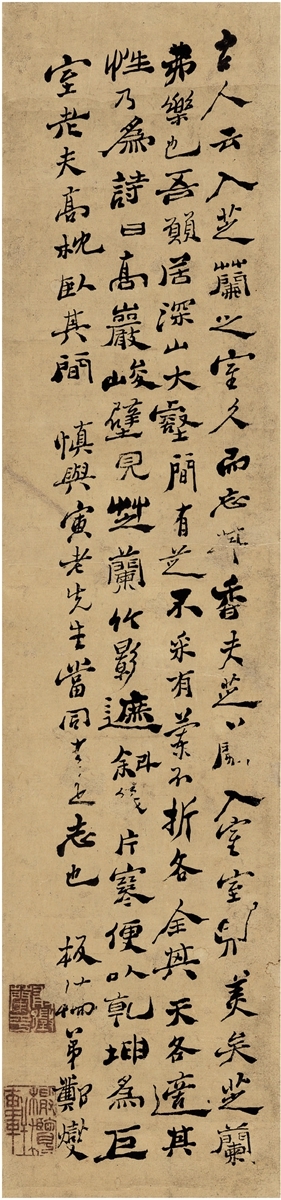 古人云入芝蘭之室久而忘其香夫芝蘭入室室則美矣芝蘭
弗樂也吾願居深山大壑間有芝不采有蘭不折各全其天各適其
性乃為詩曰高巖峻壁見芝蘭竹影遮斜幾片寒便以乾坤為巨
室老夫高枕臥其間 慎與寅老先生當同老是志也 板橋弟鄭燮